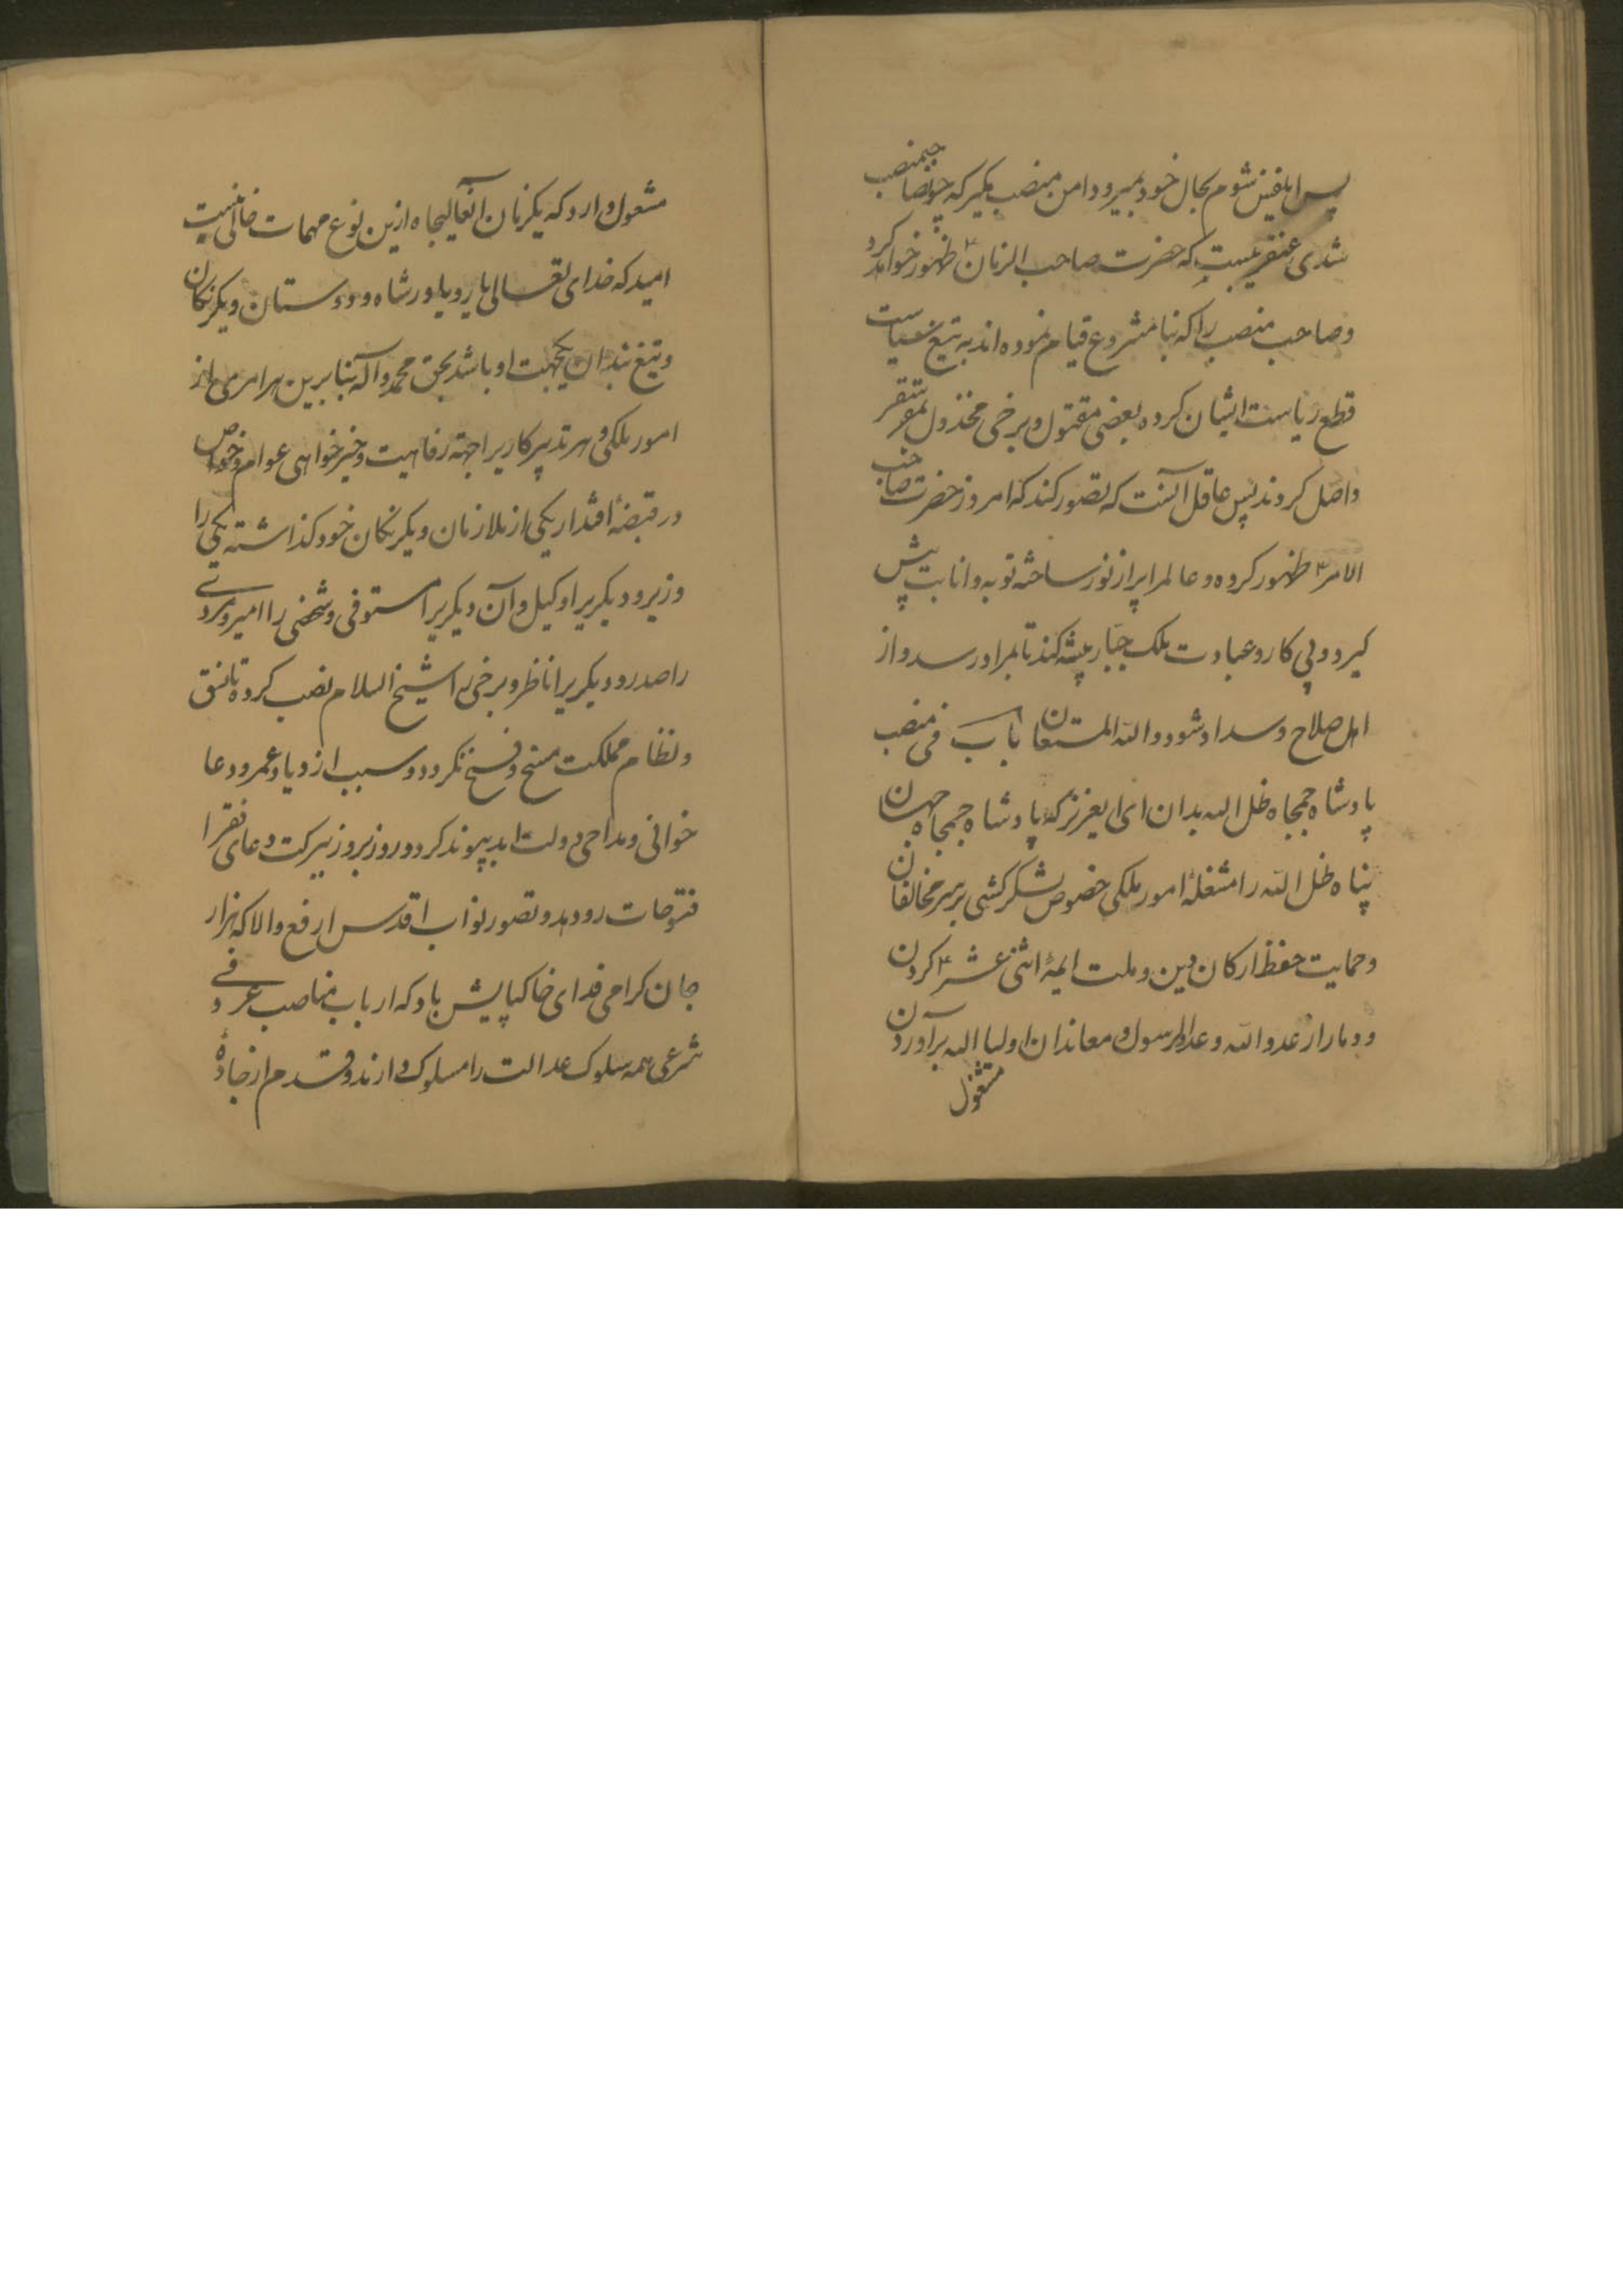 پس ایلفیض شوم بحال خود بمیرو دامن منصب مکیر که چون صاحبمنصب
شدی عنقریبست که حضرت صاحب الزمان ظهور خواهد کرد
و صاحب منصب را که نبا مشروع قیام نموده اند به تیغ سیاست
قطع ریاست ایشان کرده بعضی مقتول و برخی مخذول بمقر سقر
واصل کردند پس عاقل آنست که تصور کند که امروز حضرت صاحب
الامر ظهور کرده و عالم را پر از نور ساخته توبه و انابت پیش
کیرد و پی کار و عبادت ملک جبار پیشه کند تا بمراد رسد و از
اهل صلاح و سداد شود و الله المستعان باب فی منصب
پادشاه جمجاه ظل الله بدان ای ایعزیز که پادشاه جمجاه جهان
پناه ظل الله را مشغلهٔ امور ملکی خصوص لشکرکشی بر سر مخالفان
و حمایت حفظ ارکان دین و ملت ایمهٔ اثنی عشر کردن
و دمار از عدو الله و عدو الرسول و معاندان اولیا الله برآوردن
مشغول
مشعول دارد که یکزمان آنعالیجاه ازین نوع مهمات خالی نیست
امید که خدای تعالی یار و یاور شاه و دوستان و یکرنکان
و تیغ بندان یکجهت او باشد بحق محمد و آله بنابرین هر امری از
امور ملکی و هر تدبیر کاریرا جهة رفاهیت و خیرخواهی عوام و خواص
در قبضهٔ اقتدار یکی از ملازمان و یکرنکان خود کذاشته یکی را
وزیر و دیکریرا وکیل و آن دیکریرا مستوفی و شخصی را امیر و مردی
را صدر و دیکریرا ناظر و برخی را شیخ السلام نصب کرده تا نسق
و نظام مملکت منسخ و فسخ نکردد و سبب ازدیاد عمر و دعا
خوانی و مداحی دولت ابد پیوند کردد و روز بروز ببرکت دعای فقرا
فتوحات رو دهد و تصور نواب اقدس ارفع والا که هزار
جان کرامی فدای خاکپایش باد که ارباب مناصب عرفی و
شرعی همه سلوک عدالت را مسلوک دارند و قدم از جادهٔ